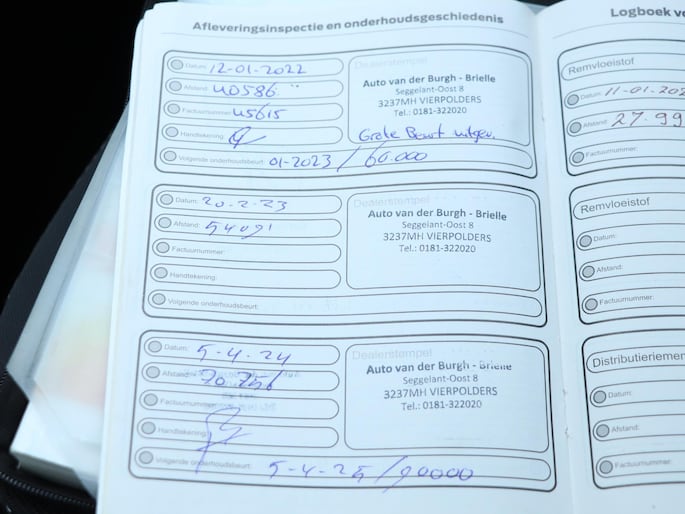 Afleveringsinspectie en onderhoudsgeschiedenis
Datum: 12-01-2022
Afstand: 40586
Factuurnummer: 45615
Handtekening:
Volgende onderhoudsbeurt: 01-2023 / 60.000
Dealerstempel
Auto van der Burgh - Brielle
Seggelant-Oost 8
3237MH VIERPOLDERS
Tel.: 0181-322020
Grote Beurt uitgev.
Datum: 20-2-23
Afstand: 54091
Factuurnummer:
Handtekening:
Volgende onderhoudsbeurt:
Dealerstempel
Auto van der Burgh - Brielle
Seggelant-Oost 8
3237MH VIERPOLDERS
Tel.: 0181-322020
Datum: 5-4-24
Afstand:
Factuurnummer:
Handtekening:
Volgende onderhoudsbeurt: 5-4-25 / 90000
Dealerstempel
Auto van der Burgh - Brielle
Seggelant-Oost 8
3237MH VIERPOLDERS
Tel.: 0181-322020
Logboek ve
Remvloeistof
Datum: 11-01-202
Afstand: 27.99
Factuurnummer:
Remvloeistof
Datum:
Afstand:
Factuurnummer:
Distributieriemen
Datum:
Afstand:
Factuurnummer: